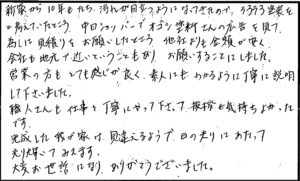 新築から10年もたち、汚れが目立つようになってきたので、そろそろ塗装を
と考えていたところ、中日ショッパーでオシ塗料さんの広告を見て、
試しに見積りをお願いしたところ 他社よりも金額が安く
会社も地元で近いということもあり お願いすることにしました。
営業の方もとても感じが良く、素人にもわかるように丁寧に説明
して下さいました。
職人さんも仕事を丁寧にやって下さって、挨拶も気持ちよかった
です。
完成した我が家は、見違えるようで、日の光りにあたって
光り輝いてみえます。
大変お世話になり、ありがとうございました。